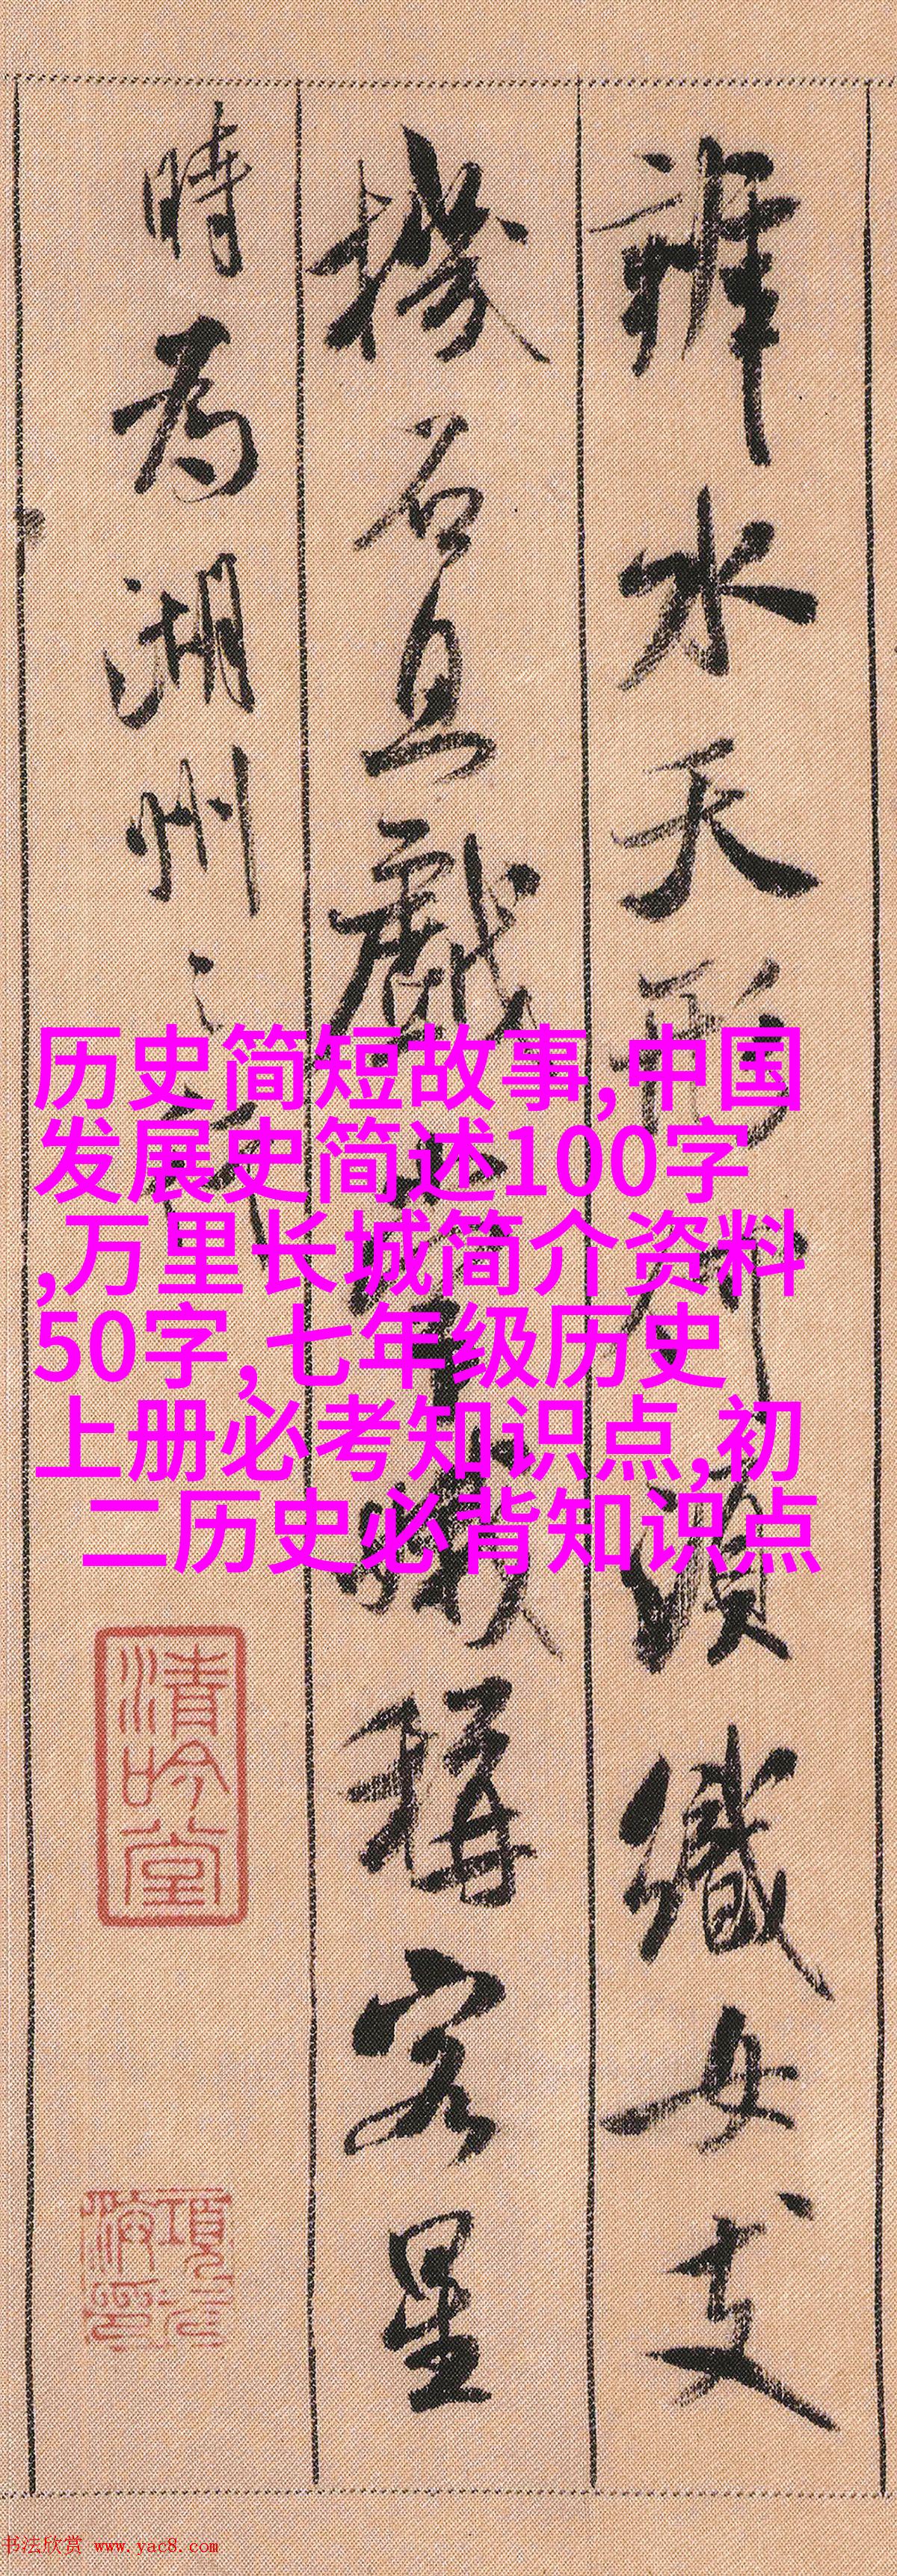 辨水天形何須織女支
機石且戲常娥稱客星
時為湖州之行
历史简短故事,中国
发展史简述100字
,万里长城简介资料
50字,七年级历史
上册必考知识点,初
二历史必背知识点
清吟堂
書法欣赏 www.yac8.com